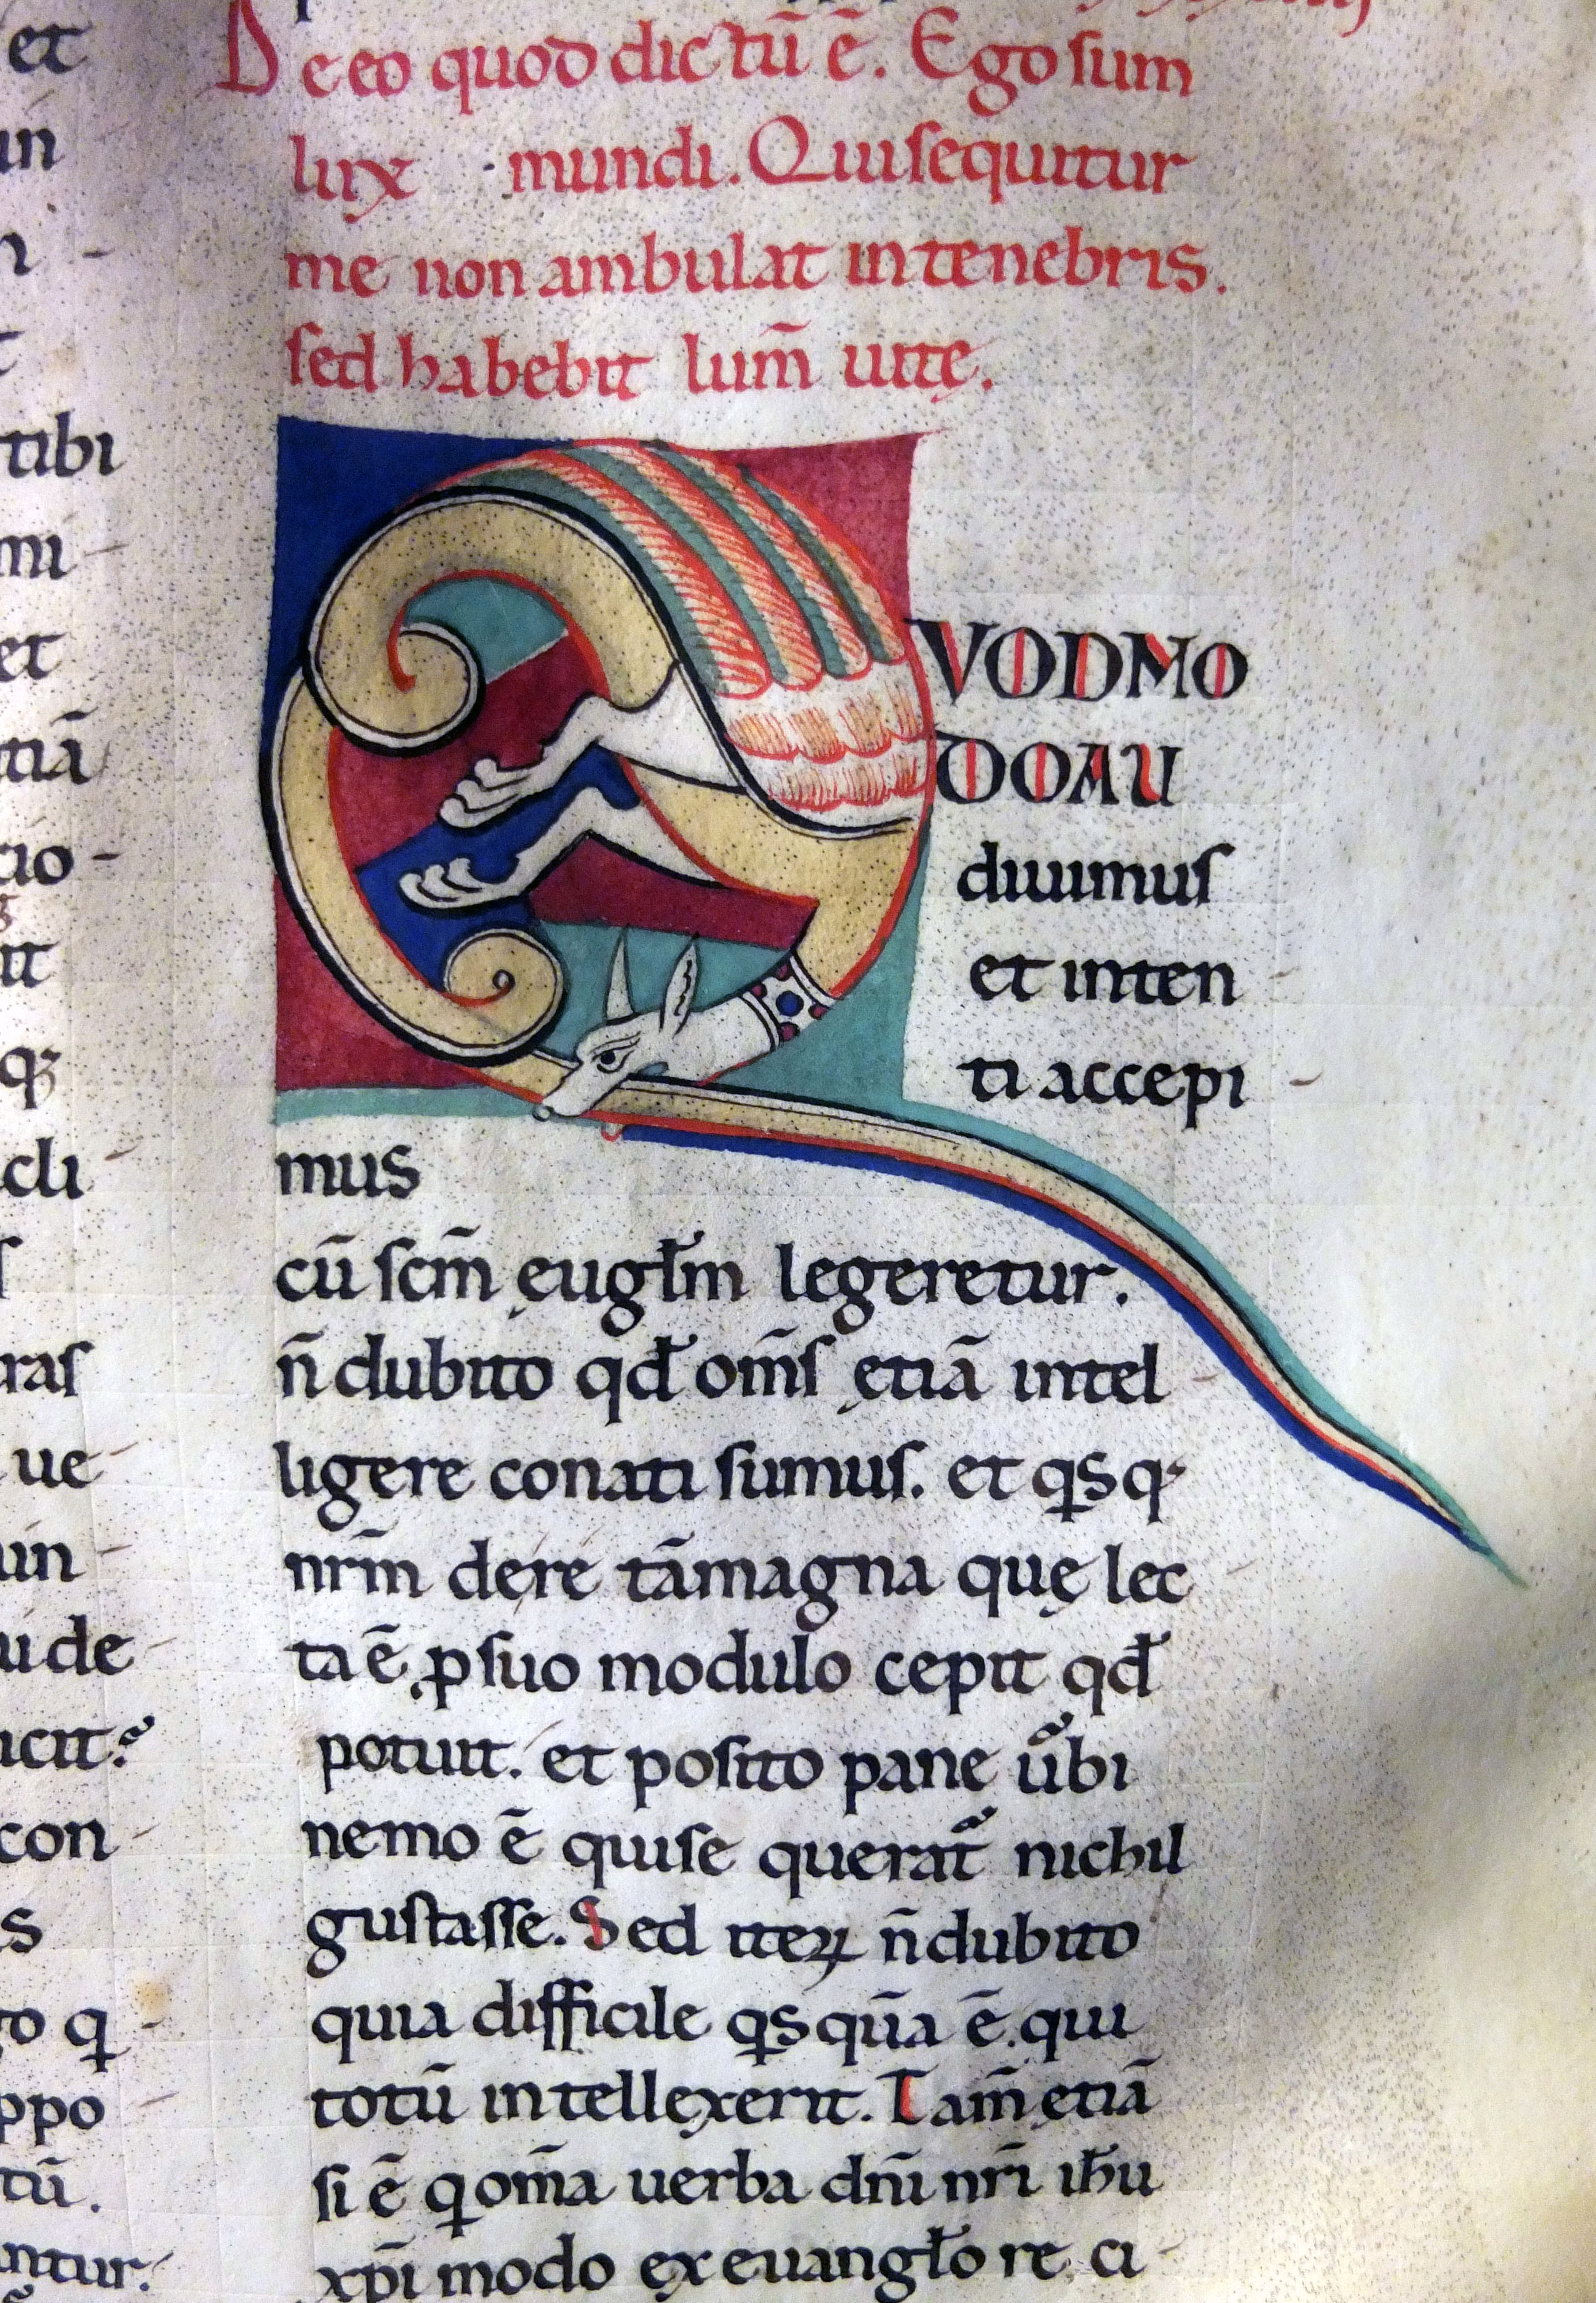 et
in
n -
tibi
mi -
et
tiā
tio -
it
qꝫ
cli -
ras
ue -
in -
ude -
icit?
con -
s
o q -
ppo
tū.
ntur.
De eo quod dictū ē. Ego sum
lux mundi. Qui sequitur
me non ambulat in tenebris.
sed habebit lum̄ uitę.
QVOD MO
DO AU
diuimus
et inten -
ti accepi -
mus
cū sc̄m euḡlm legeretur.
n̄ dubito qđ om̄s etiā intel -
ligere conati sumus. et qsq·
nr̄m de re tā magna quę lec
ta ē, ꝓ suo modulo cepit qđ
potuit. et posito pane ūbi
nemo ē qui se querat̄ nichil
gustasse. Sed iteꝝ n̄ dubito
quia difficile qsqūa ē. qui
totū intellexerit. Tam̄ etiā
si ē q om̄a uerba dn̄i nr̄i ih̄u
xp̄i modo ex euangło re ci -